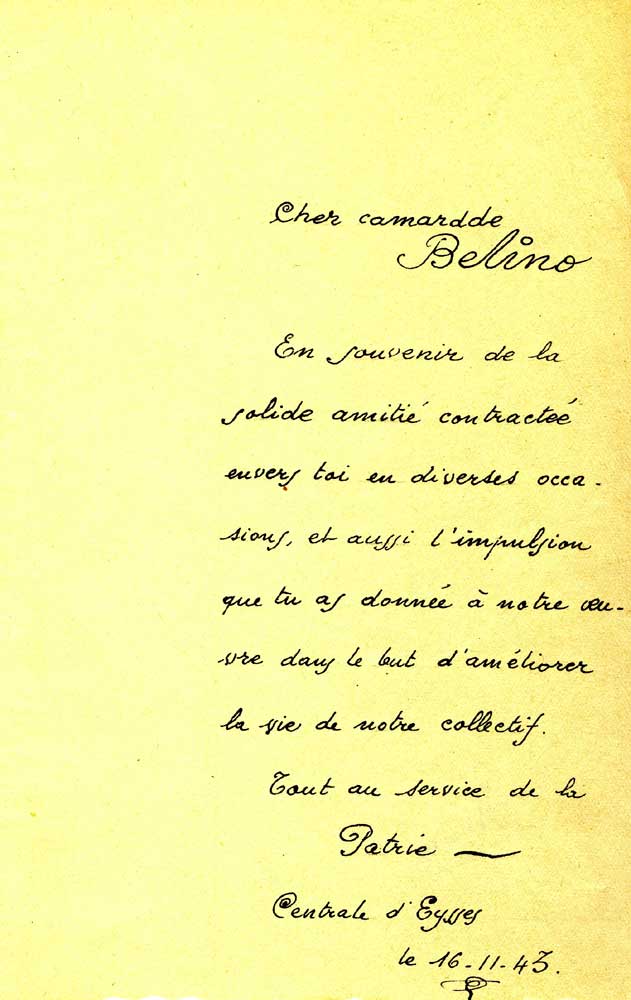 Cher camardde
Belino
En souvenir de la
solide amitié contracteé
envers toi en diverses occa-
sions, et aussi l'impulsion
que tu as donnée à notre œu-
vre dans le but d'améliorer
la vie de notre collectif.
Tout au service de la
Patrie —
Centrale d'Eysses
le 16-11-43.